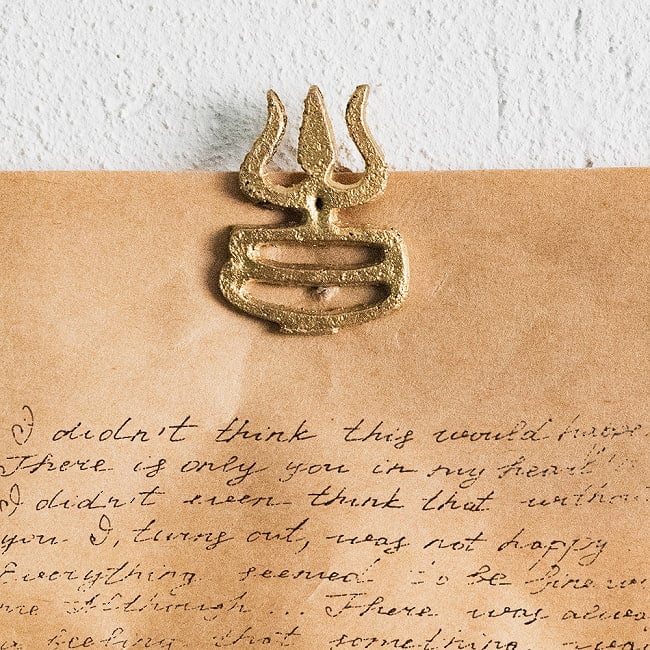 I didn't think this would happe
There is only you in my heart
I didn't even think that withou
you. I, turns out, was not happy
Everything seemed to be fine wi
me Although ... There was alwa
a feeling that something was